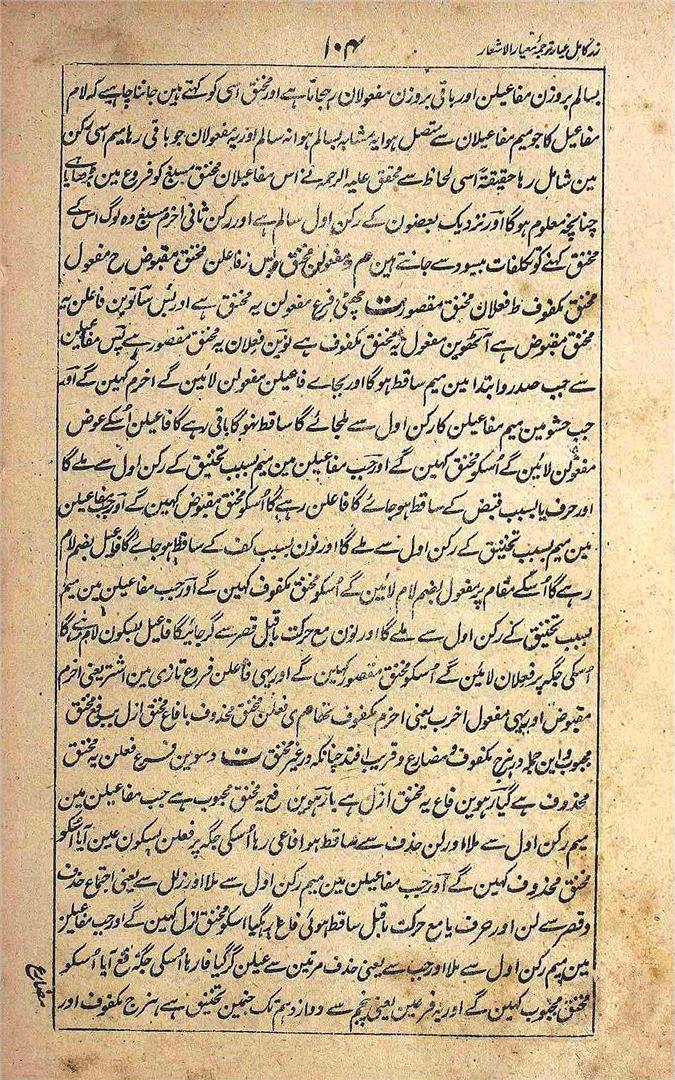 زر کامل عیار ترجمۂ معیار الاشعار
۱۰۴
بسالم بروزن مفاعیلن اور باقی بروزن مفعولان رہجاتا ہے اور مخنق اسی کو کہتے ہین جاننا چاہیے کہ لام
مفاعیل کا جو میم مفاعیلان سے متصل ہوا یہ مشابہ بسالم ہوا نہ سالم اور یہ مفعولان جو باقی رہا میم اسی رکن
مین شامل رہا حقیقۃً اسی لحاظ سے محقق علیہ الرحمہ نے اس مفاعیلان مخنق مسبغ کو فروع مین بڑھایا ہے
چنانچہ معلوم ہوگا اور نزدیک بعضون کے رکن اول سالم ہے اور رکن ثانی اخرم مسبغ وہ لوگ اس کے
مخنق کہنے کو تکلفات بیسود سے جانتے ہین هم و مفعولن مخنق و س ز فاعلن مخنق مقبوض رح مفعول
مخنق مکفوف ط فعلان مخنق مقصور ت چھٹی فرع مفعولن یہ مخنق ہے اور ساتوین فاعلن یہ
مخنق مقبوض ہے آٹھوین مفعول یہ مخنق مکفوف ہے نوین فعلان یہ مخنق مقصور ہے پس مفاعیلن
سے جب صدر و ابتدا مین میم ساقط ہوگا اور بجاے فاعیلن مفعولن لائین گے اخرم کہین گے اور
جب حشو مین میم مفاعیلن کا رکن اول سے ملجائے گا ساقط نہوگا باقی رہے گا فاعیلن اُسکے عوض
مفعولن لائین گے اُسکو مخنق کہین گے اور جب مفاعیلن مین میم بسبب تخنیق کے رکن اول سے ملے گا
اور حرف یا بسبب قبض کے ساقط ہو جائے گا فاعلن رہے گا اُسکو مخنق مقبوض کہین گے اور جب مفاعیلن
مین میم بسبب تخنیق کے رکن اول سے ملے گا اور نون بسبب کف کے ساقط ہو جائے گا فاعیل بضم لام
رہے گا اُسکے مقام پر مفعول بضم لام لائین گے اُسکو مخنق مکفوف کہین گے اور جب مفاعیلن مین میم
بسبب تخنیق کے رکن اول سے ملے گا اور نون مع حرکت ماقبل قصر سے گر جائیگا فاعیل بسکون لام رہے گا
اُسکی جگہ پر فعلان لائین گے اُسکو مخنق مقصور کہین گے اور یہی فاعلن فروع تازی مین اشتر یعنی اخرم
مقبوض اور یہی مفعول اخرب یعنی اخرم مکفوف تھا هم ی فعلن مخنق محذوف یا فاع مخنق ازل یب فع مخنق
مجبوب و این جملہ در ہزج مکفوف و مضارع و قریب افتد چنانکہ در غیر مخنق ت دسوین فرع فعلن یہ مخنق
محذوف ہے گیارہوین فاع یہ مخنق ازل ہے بارہوین فع یہ مخنق مجبوب ہے جب مفاعیلن مین
میم رکن اول سے ملا اور لن حذف سے ساقط ہوا فاعی رہا اُسکی جگہ پر فعلن بسکون عین آیا اُسکو
مخنق محذوف کہین گے اور جب مفاعیلن مین میم رکن اول سے ملا اور زلل سے یعنی اجتماع حذف
و قصر سے لن اور حرف یا مع حرکت ماقبل ساقط ہوئی فاع رہگیا اسکو مخنق ازل کہین گے اور جب مفاعیلن
مین میم رکن اول سے ملا اور جب سے یعنی حذف مرتین سے عیلن گر گیا فا رہا اُسکی جگہ فع آیا اُسکو
مخنق مجبوب کہین گے اور یہ فرعین یعنی پنجم سے دوازدہم تک جنمین تخنیق ہے ہزج مکفوف اور
مضارع